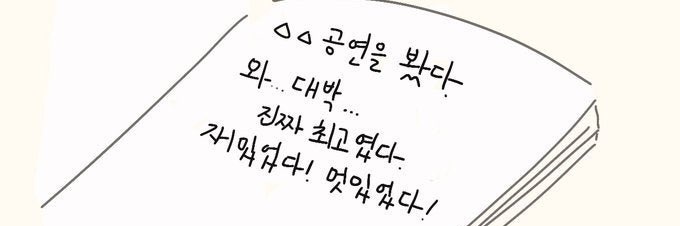 △△ 공연을 봤다.
와... 대박...
진짜 최고엽다.
재밌었다! 멋있었다!